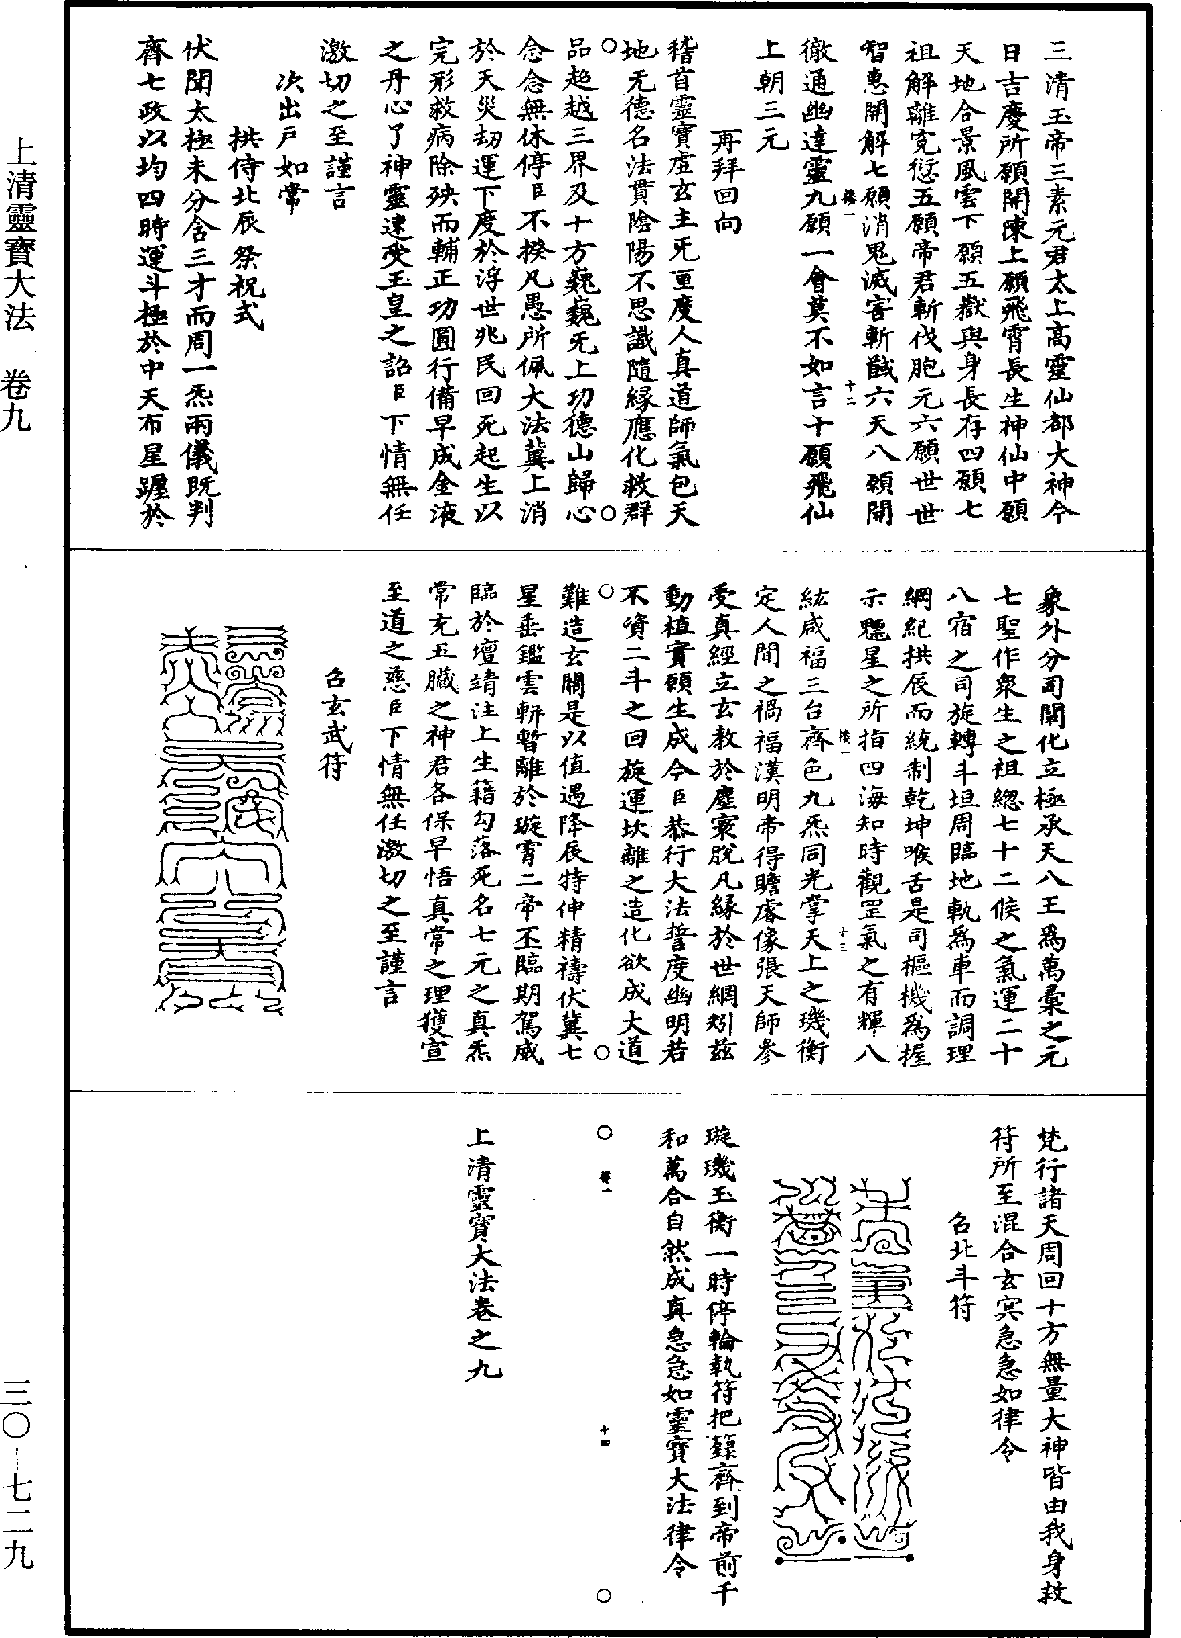 三清玉帝三素元君太上高靈仙都大神今
日吉慶所願開陳上願飛霄長生神仙中願
天地合景風雲下願五嶽與身長存四願七
祖解離寃愆五願帝君斬伐胞元六願世世
智惠開解七願消鬼滅害斬馘六天八願開
徹通幽達靈九願一會莫不如言十願飛仙
上朝三元
再拜回向
稽首靈寶虛玄主旡亶度人真道師氣包天
地无德名法貫陰陽不思議隨緣應化救群
品超越三界及十方巍巍旡上功德山歸心
念念無休停臣不揆凡愚所佩大法冀上消
於天災劫運下度於浮世兆民回死起生以
完形救病除殃而輔正功圓行備早成金液
之丹心了神靈速受玉皇之詔臣下情無任
激切之至謹言
次出戶如常
拱侍北辰祭祝式
伏聞太極未分含三才而周一炁兩儀既判
齊七政以均四時運斗極於中天布星躔於
象外分司闓化立極承天八王為萬彙之元
七聖作衆生之祖緫七十二候之氣運二十
八宿之司旋轉斗垣周臨地軌為車而調理
綱紀拱辰而統制乾坤喉舌是司樞機為握
示魒星之所指四海知時觀罡氣之有輝八
紘咸福三台齊色九炁同光掌天上之璣衡
定人間之禍福漢明帝得瞻虛像張天師參
受真經立玄教於塵寰脫凡緣於世網矧茲
動植實願生成今臣恭行大法誓度幽明若
不資二斗之回旋運坎離之造化欲成大道
難造玄關是以值遇降辰特伸精禱伏冀七
星垂鑑雲輧暫離於璇霄二帝丕臨期駕咸
臨於壇靖注上生籍勾落死名七元之真炁
常充五臟之神君各保早悟真常之理獲宣
至道之慈臣下情無任激切之至謹言
召玄武符
梵行諸天周回十方無量大神皆由我身救
符所至混合玄冥急急如律令
召北斗符
璇璣玉衡一時停輪執符把籙齊到帝前千
和萬合自然成真急急如靈寶大法律令
上清靈寶大法卷之九
上清靈寶大法　卷九
三〇-七二九
十二
十三
十四